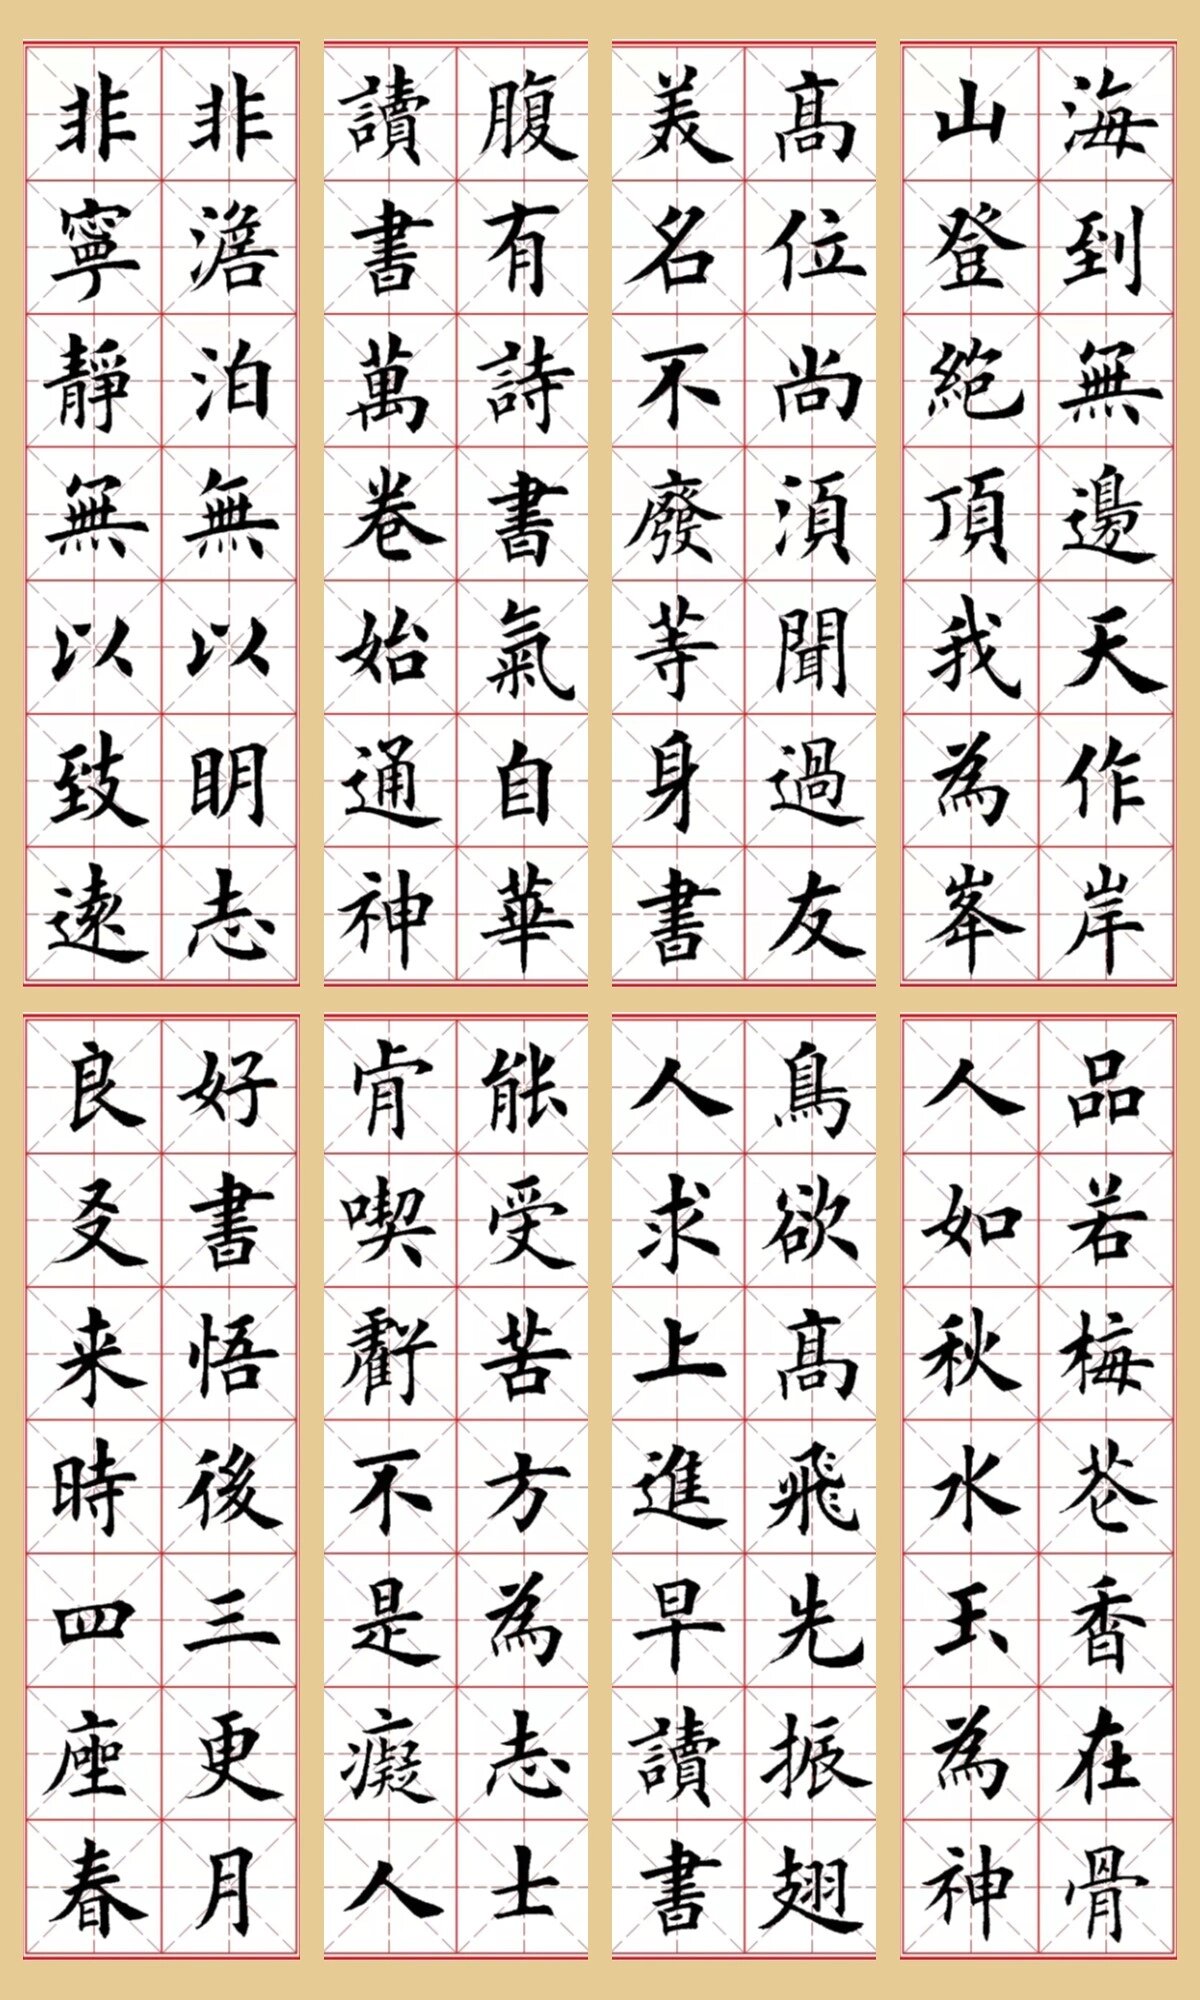 海到無邊天作岸
山登絶頂我為峯
髙位尚湏聞過友
美名不廢等身書
腹有詩書氣自華
讀書萬卷始通神
非澹泊無以明志
非寧靜無以致遠
品若梅花香在骨
人如秋水玉為神
鳥欲髙飛先振翅
人求上進早讀書
能受苦方為志士
肯喫虧不是癡人
好書悟後三更月
良友来時四座春